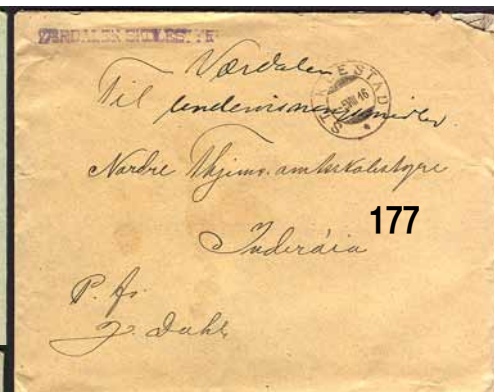 VÆRDALEN SKOLESTYRE
Værdalen
STIKLESTAD
16
Til undervisningsmidler.
Nordre amtsskolestyre
Inderøia
177
P. fr.
J. Dahl